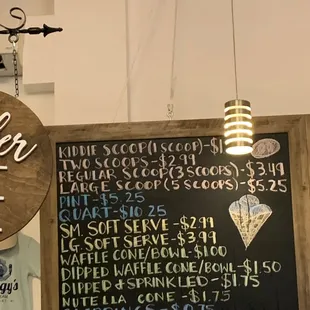 KIDDIE SCOOP (1 SCOOP)-
TWO SCOOPS-$2.99
REGULAR SCOOP (3 SCOOPS)-$3.49
LARGE SCOOP (5 SCOOPS)-$5.25
PINT-$5.25
QUART-$10.25
SM. SOFT SERVE-$2.99
LG. SOFT SERVE-$3.99
WAFFLE CONE/BOWL-$1.00
DIPPED WAFFLE CONE/BOWL-$1.50
DIPPED & SPRINKLED-$1.75
NUTELLA CONE-$1.75